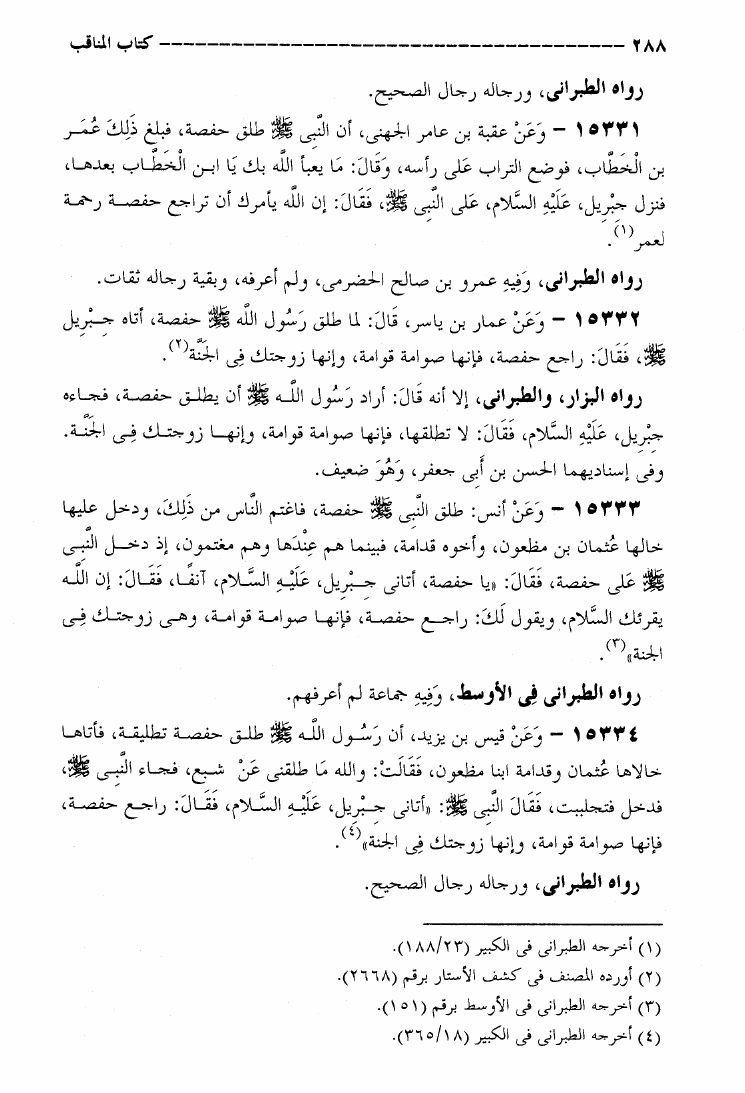 ٢٨٨ ــــــــــــــــــــــــــــــــــــــــــــــ كتاب المناقب
رواه الطبرانى، ورجاله رجال الصحيح.
١٥٣٣١ – وَعَنْ عقبة بن عامر الجهنى، أن النَّبِى ﷺ طلق حفصة، فبلغ ذَلِكَ عُمَر
بن الْخَطَّاب، فوضع التراب عَلى رأسه، وَقَالَ: مَا يعبأ اللَّه بك يَا ابن الْخَطَّاب بعدها،
فنزل جِبْرِيل، عَلَيْهِ السَّلام، عَلى النَّبِى ﷺ، فَقَالَ: إن اللَّه يأمرك أن تراجع حفصة رحمة
لعمر(١).
رواه الطبرانى، وَفِيهِ عمرو بن صالح الحضرمى، ولم أعرفه، وبقية رجاله ثقات.
١٥٣٣٢ – وَعَنْ عمار بن ياسر، قَالَ: لما طلق رَسُول اللَّه ﷺ حفصة، أتاه جِبْرِيل
ﷺ، فَقَالَ: راجع حفصة، فإنها صوامة قوامة، وإنها زوجتك فِى الجَنَّة(٢).
رواه البزار، والطبرانى، إلا أنه قَالَ: أراد رَسُول اللَّه ﷺ أن يطلق حفصة، فجاءه
جِبْرِيل، عَلَيْهِ السَّلام، فَقَالَ: لا تطلقها، فإنها صوامة قوامة، وإنها زوجتك فِى الجَنَّة.
وفى إسناديهما الحسن بن أَبِى جعفر، وَهُوَ ضعيف.
١٥٣٣٣ – وَعَنْ أنس: طلق النَّبِى ﷺ حفصة، فاغتم النَّاس من ذَلِكَ، ودخل عليها
خالها عُثمان بن مظعون، وأخوه قدامة، فبينما هم عِنْدَها وهم مغتمون، إذ دخل النَّبِى
ﷺ عَلى حفصة، فَقَالَ: «يا حفصة، أتانى جِبْرِيل، عَلَيْهِ السَّلام، آنفًا، فَقَالَ: إن اللَّه
يقرئك السَّلام، ويقول لَكَ: راجع حفصة، فإنها صوامة قوامة، وهى زوجتك فِى
الجنة»(٣).
رواه الطبرانى فِى الأوسط، وَفِيهِ جماعة لم أعرفهم.
١٥٣٣٤ – وَعَنْ قيس بن يزيد، أن رَسُول اللَّه ﷺ طلق حفصة تطليقة، فأتاها
خالاها عُثمان وقدامة ابنا مظعون، فَقَالَتْ: والله مَا طلقنى عَنْ شبع، فجاء النَّبِى ﷺ،
فدخل فتجلببت، فَقَالَ النَّبِى ﷺ: «أتانى جِبْرِيل، عَلَيْهِ السَّلام، فَقَالَ: راجع حفصة،
فإنها صوامة قوامة، وإنها زوجتك فِى الجنة»(٤).
رواه الطبرانى، ورجاله رجال الصحيح.
(١) أخرجه الطبرانى فى الكبير (١٨٨/٢٣).
(٢) أورده المصنف فى كشف الأستار برقم (٢٦٦٨).
(٣) أخرجه الطبرانى فى الأوسط برقم (١٥١).
(٤) أخرجه الطبرانى فى الكبير (٣٦٥/١٨).